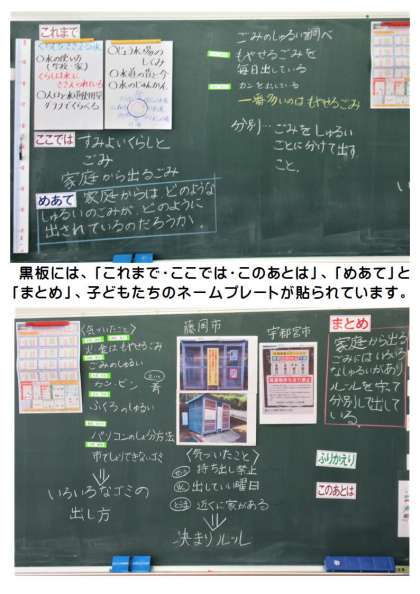 これまで
〇水の使い方
(学校・家)
くらしは水に
ささえられている
〇人口と水道使用量
グラフでくらべる
〇じょう水場の
しくみ
〇水道の昔と今
〇水のじゅんかん
ここでは
すみよいくらしと
ごみ
家庭から出るごみ
めあて
家庭からは、どのような
しゅるいのごみが、どのように
出されているのだろうか。
ごみのしゅるい調べ
もやせるごみを
毎日出している
一番多いのはもやせるごみ
分別…ごみをしゅるい
ごとに分けて出す
こと。
黒板には、「これまで・ここでは・このあとは」、「めあて」と
「まとめ」、子どもたちのネームプレートが貼られています。
〈気づいたこと〉
火、金はもやせるごみ
ごみのしゅるい
カン・ビン
青
ふくろのしゅるい
パソコンのしょ分方法
市でしょりできないゴミ
いろいろなゴミの
出し方
藤岡市
宇都宮市
〈気づいたこと〉
持ち出し禁止
出していい曜日
近くに家がある
決まり ルール
まとめ
家庭から出る
ごみにはいろいろ
なしゅるいがあり
ルールを守って
分別して出して
いる
ふりかえり
このあとは